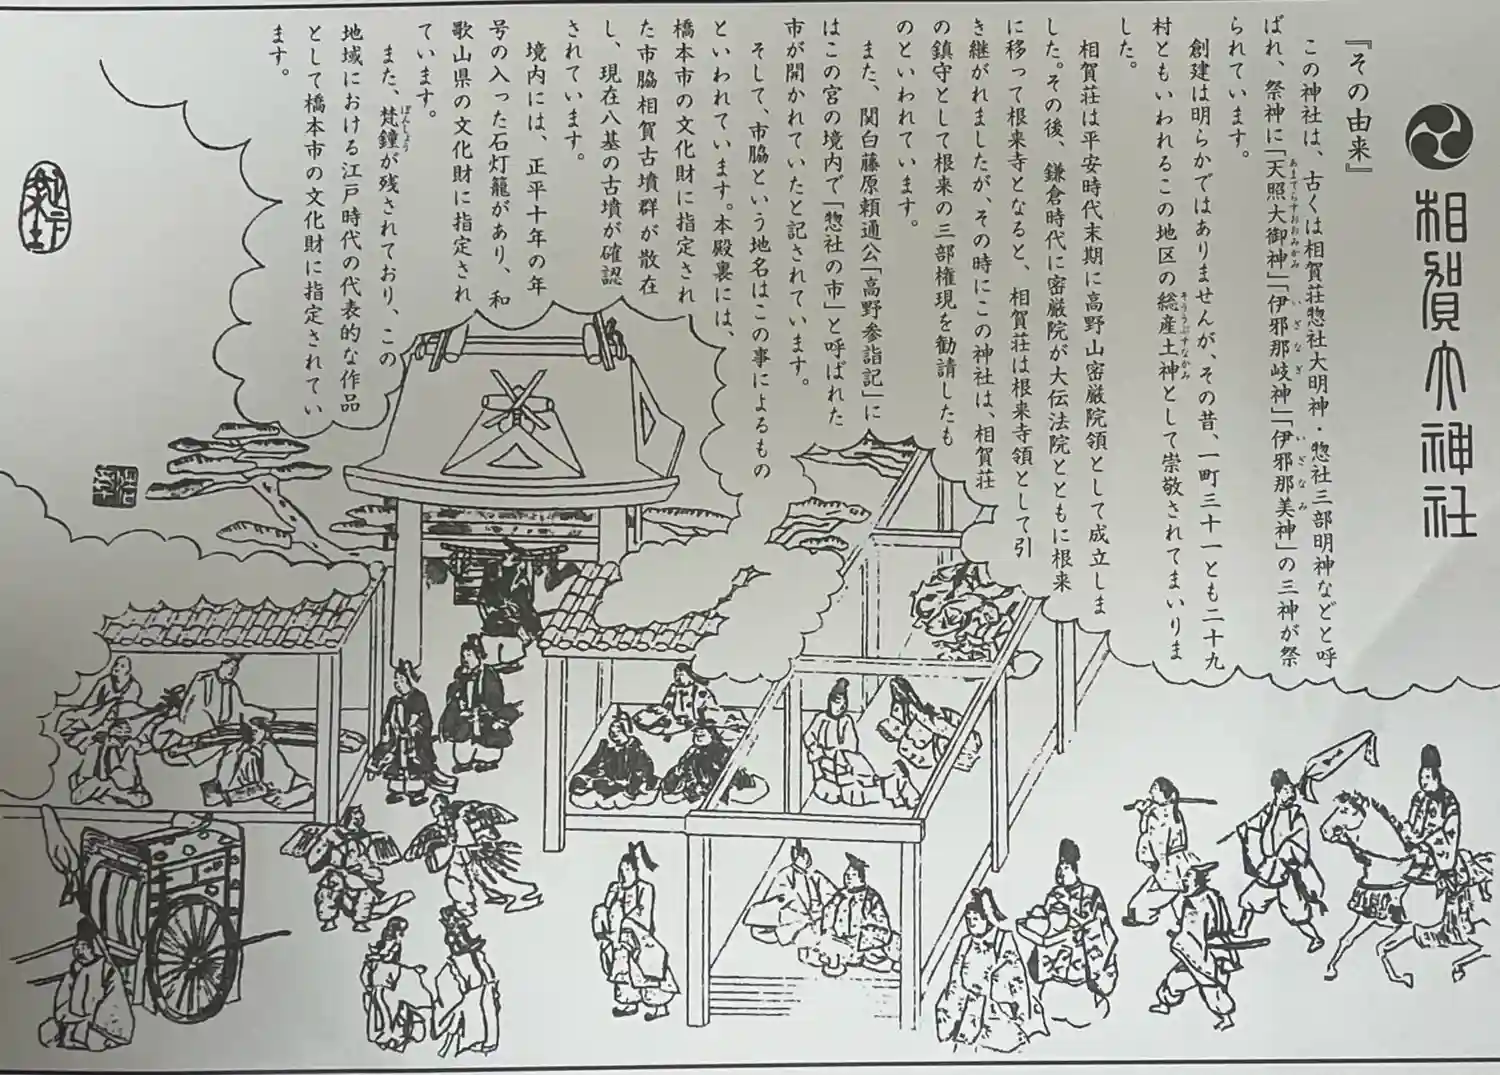 相賀大神社
『その由来』
この神社は、古くは相賀荘惣社大明神・惣社三部明神などと呼
ばれ、祭神に「天照大御神」「伊邪那岐神」「伊邪那美神」の三神が祭
あまてらすおおみかみ
いざなぎ
いざなみ
られています。
創建は明らかではありませんが、その昔、一町三十一とも二十九
村ともいわれるこの地区の総産土神として崇敬されてまいりま
そううぶすなかみ
した。
相賀荘は平安時代末期に高野山密厳院領として成立しま
した。その後、鎌倉時代に密厳院が大伝法院とともに根来
に移って根来寺となると、相賀荘は根来寺領として引
き継がれましたが、その時にこの神社は、相賀荘
の鎮守として根来の三部権現を勧請したも
のといわれています。
また、関白藤原頼通公「高野参詣記」に
はこの宮の境内で「惣社の市」と呼ばれた
市が開かれていたと記されています。
そして、市脇という地名はこの事によるもの
といわれています。本殿裏には、
橋本市の文化財に指定され
た市脇相賀古墳群が散在
し、現在八基の古墳が確認
されています。
境内には、正平十年の年
号の入った石灯籠があり、和
歌山県の文化財に指定され
ています。
また、梵鐘が残されており、この
ぼんしょう
地域における江戸時代の代表的な作品
として橋本市の文化財に指定されてい
ます。